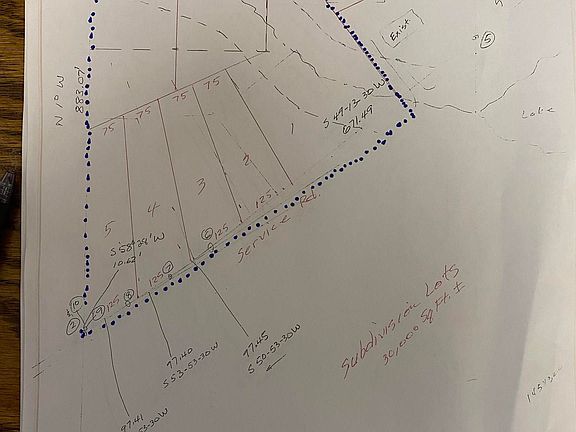 Exist.
5
883.07'
S 49-13-30 W
671.49
Lake
75
75
75
75
1
2
3
4
5
125
125
125
125
6
7
8
9
10
2
S 58°28' W
10.62'
Service Rd.
97.45
S 50-53-30 W
97.40
S 53-53-30 W
97.41
53-30 W
Subdivision Lots
30,000 Sq Ft. ±